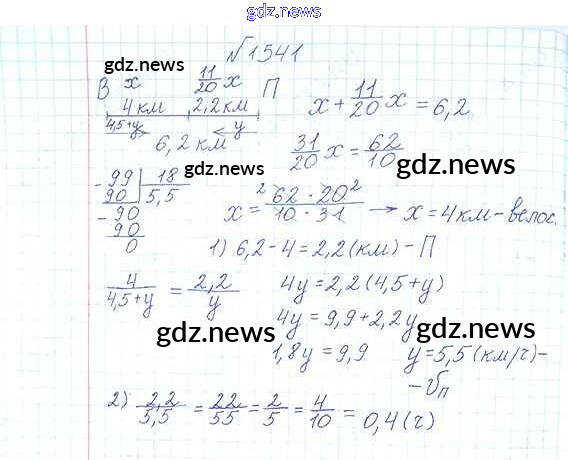 gdz.news
№1541
gdz.news
В x 11/20 x П
4 км 2,2 км
4,5+y y
6,2 км
x + 11/20 x = 6,2
31/20 x = 62/10
gdz.news
99 | 18
90 | 5,5
90
90
0
x = 62 · 20 / 10 · 31 → x = 4 км – велос.
2 2
gdz.news
1) 6,2 – 4 = 2,2 (км) – П
4/4,5+y = 2,2/y
4y = 2,2 (4,5 + y)
4y = 9,9 + 2,2y
gdz.news
gdz.news
1,8y = 9,9 y = 5,5 (км/ч) –
– Vп
2) 2,2/5,5 = 22/55 = 2/5 = 4/10 = 0,4 (ч)
gdz.news